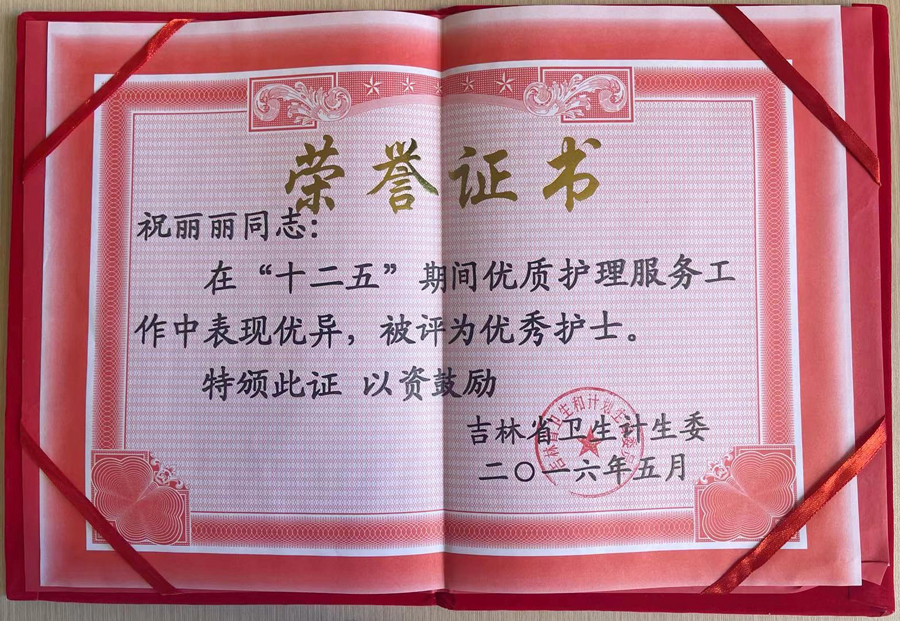 荣誉证书
祝丽丽同志：
在“十二五”期间优质护理服务工
作中表现优异，被评为优秀护士。
特颁此证 以资鼓励
吉林省卫生计生委
二〇一六年五月